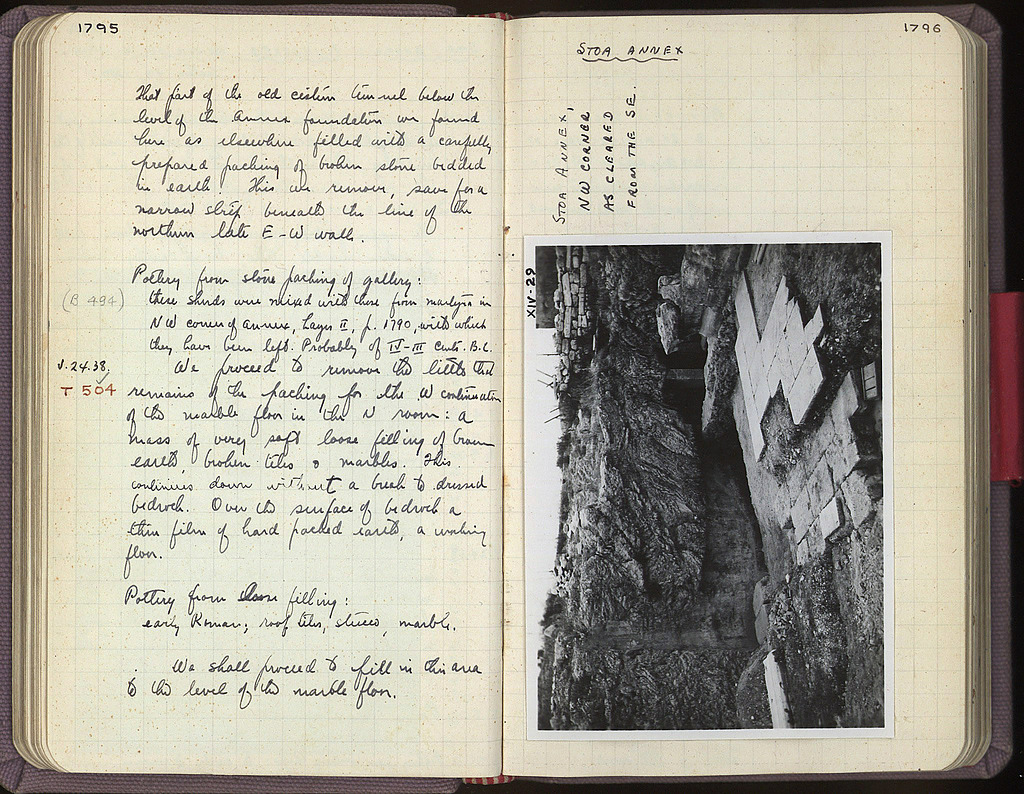 1795
That part of the old cistern tunnel below the
level of the Annex foundation we found
here as elsewhere filled with a carefully
prepared packing of broken stone bedded
in earth. This we remove, save for a
narrow strip beneath the line of the
northern late E-W wall.
Pottery from stone packing of gallery:
(B 494)
these sherds were mixed with those from in
NW corner of Annex, Layer II, p. 1790, with which
they have been left. Probably of IV-III cents. B.C.
V.24.38.
We proceed to remove the little that
T 504
remains of the packing for the W continuation
of the marble floor in the N room: a
mass of very soft loose filling of brown
earth, broken tiles & marbles. This
continues down without a break to dressed
bedrock. Over the surface of bedrock a
thin film of hard packed earth, a working
floor.
Pottery from loose filling:
early Roman; roof tiles, stucco, marble.
We shall proceed to fill in this area
to the level of the marble floor.
1796
STOA ANNEX
STOA ANNEX,
NW CORNER
AS CLEARED
FROM THE SE.
XIV-29